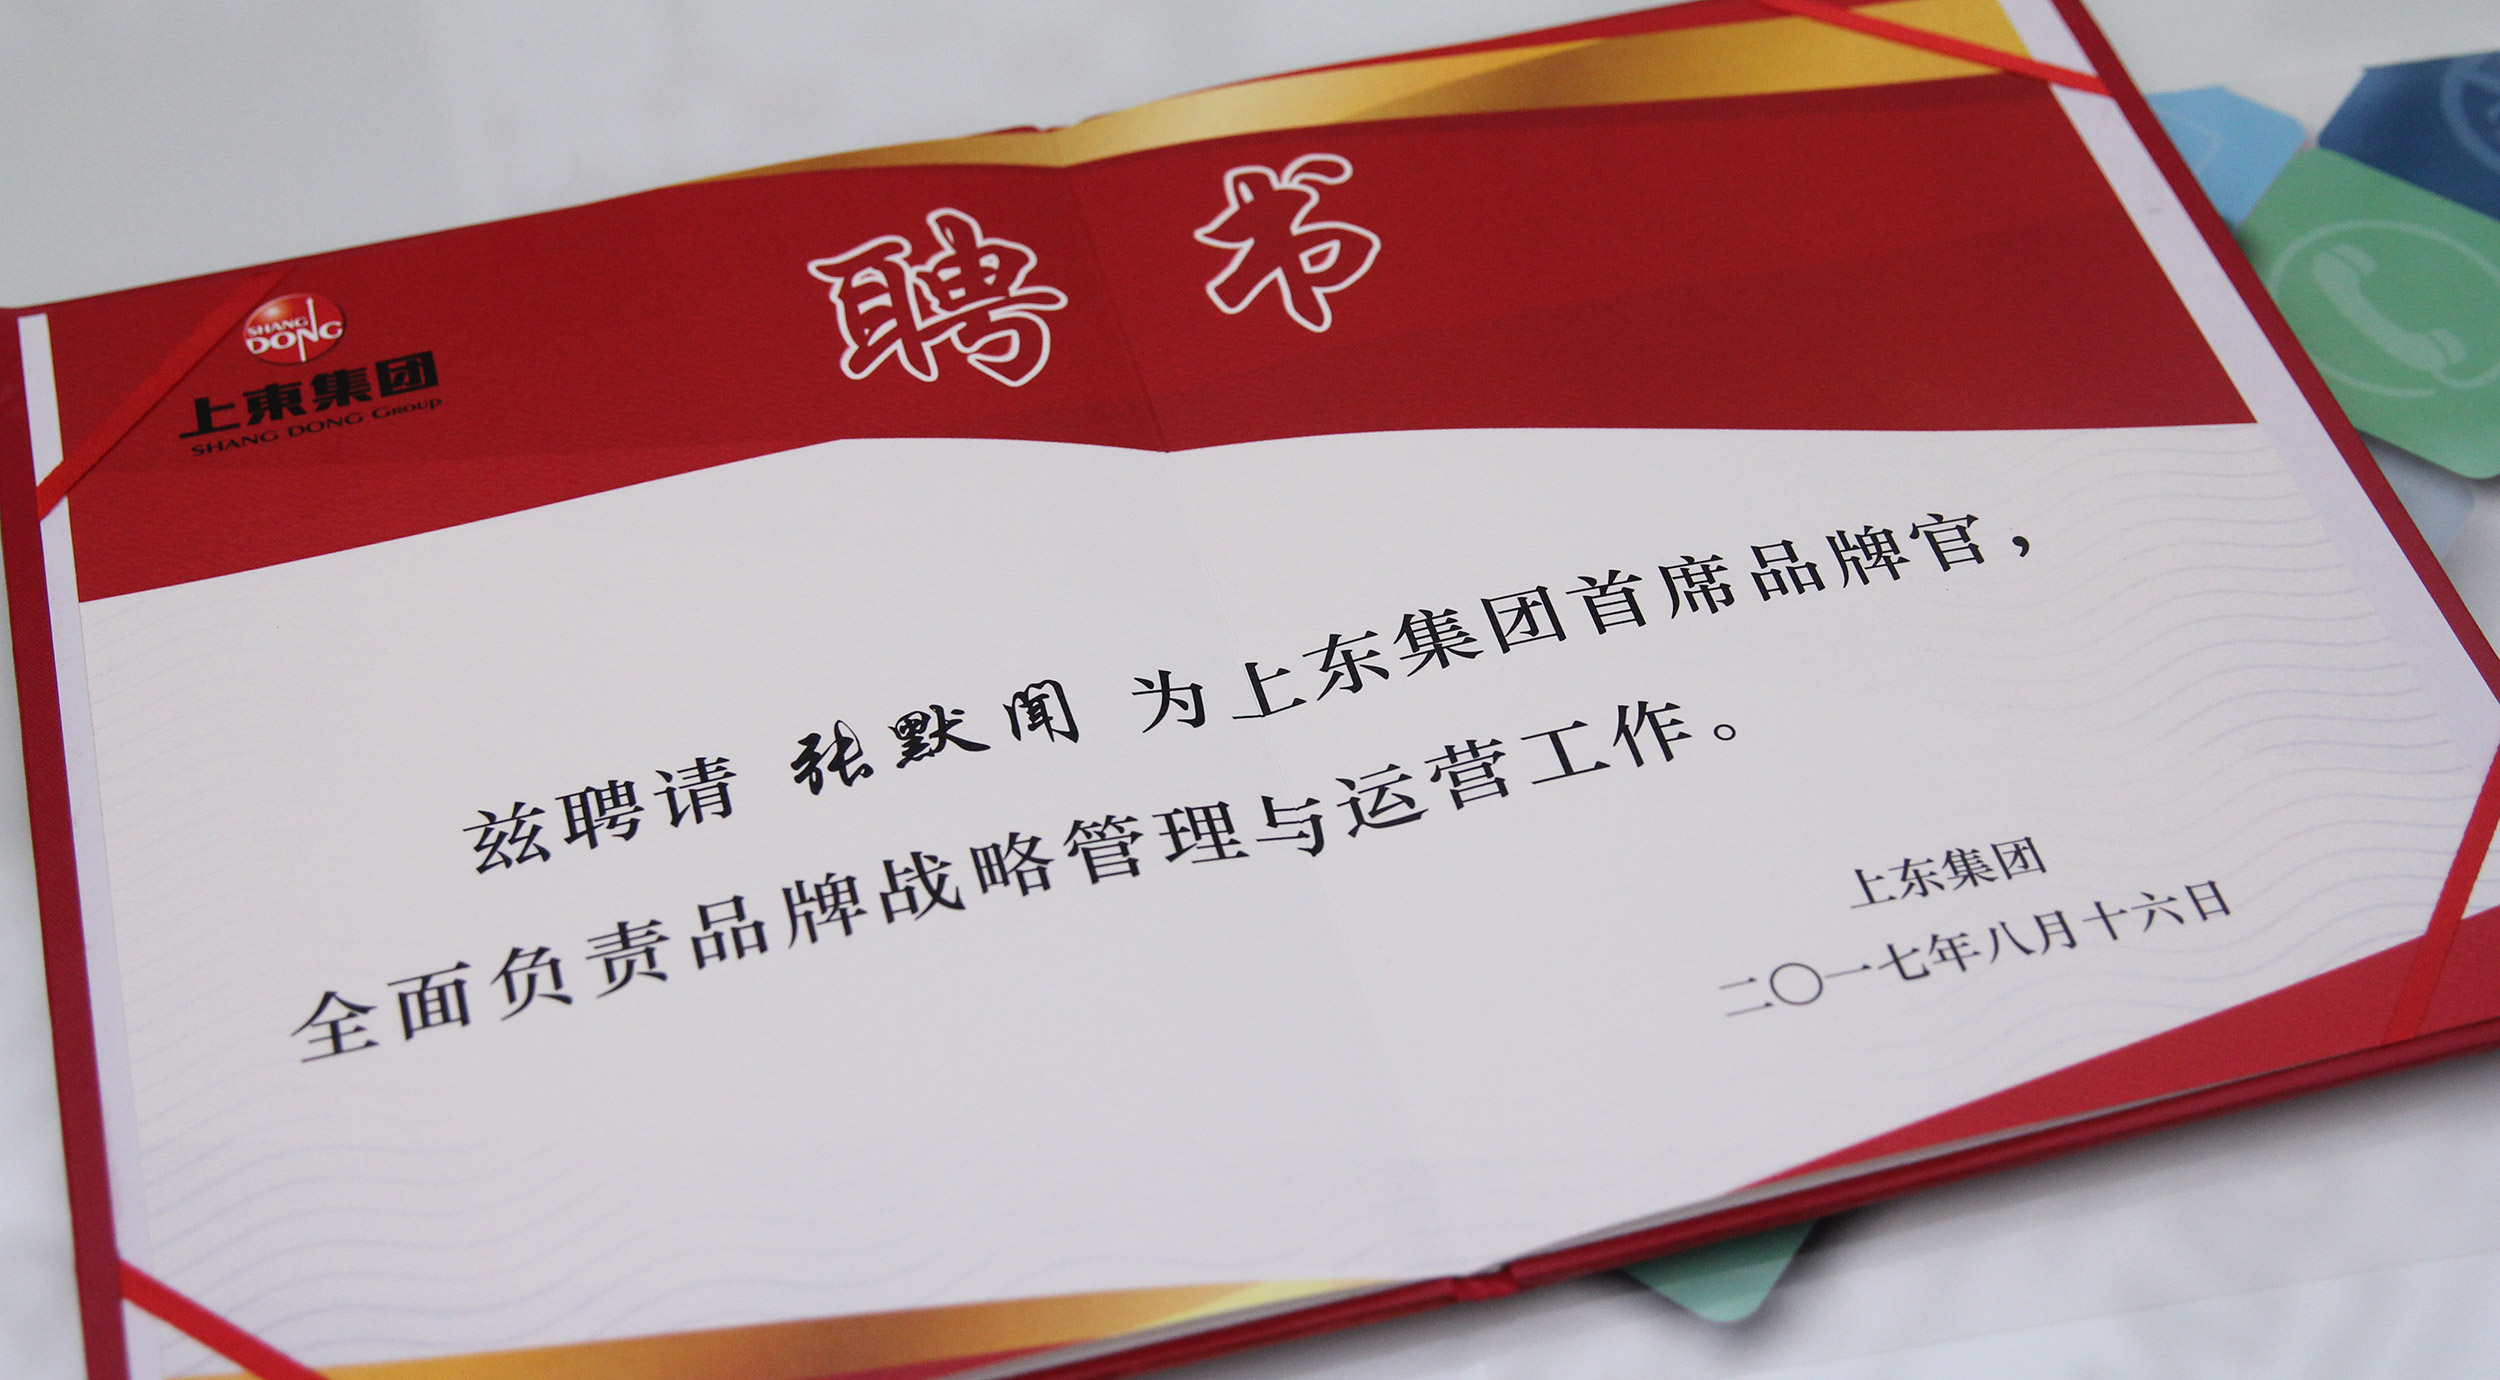 聘书
SHANG
DONG
上東集团
SHANG DONG GROUP
兹聘请 张默闻 为上东集团首席品牌官，
全面负责品牌战略管理与运营工作。
上东集团
二〇一七年八月十六日